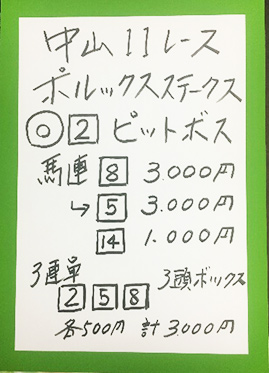 中山11レース
ポルックスステークス
◎ 2 ピットボス
馬連 8 3.000円
↳ 5 3.000円
14 1.000円
3連単 3頭ボックス
2 5 8
各500円 計3.000円